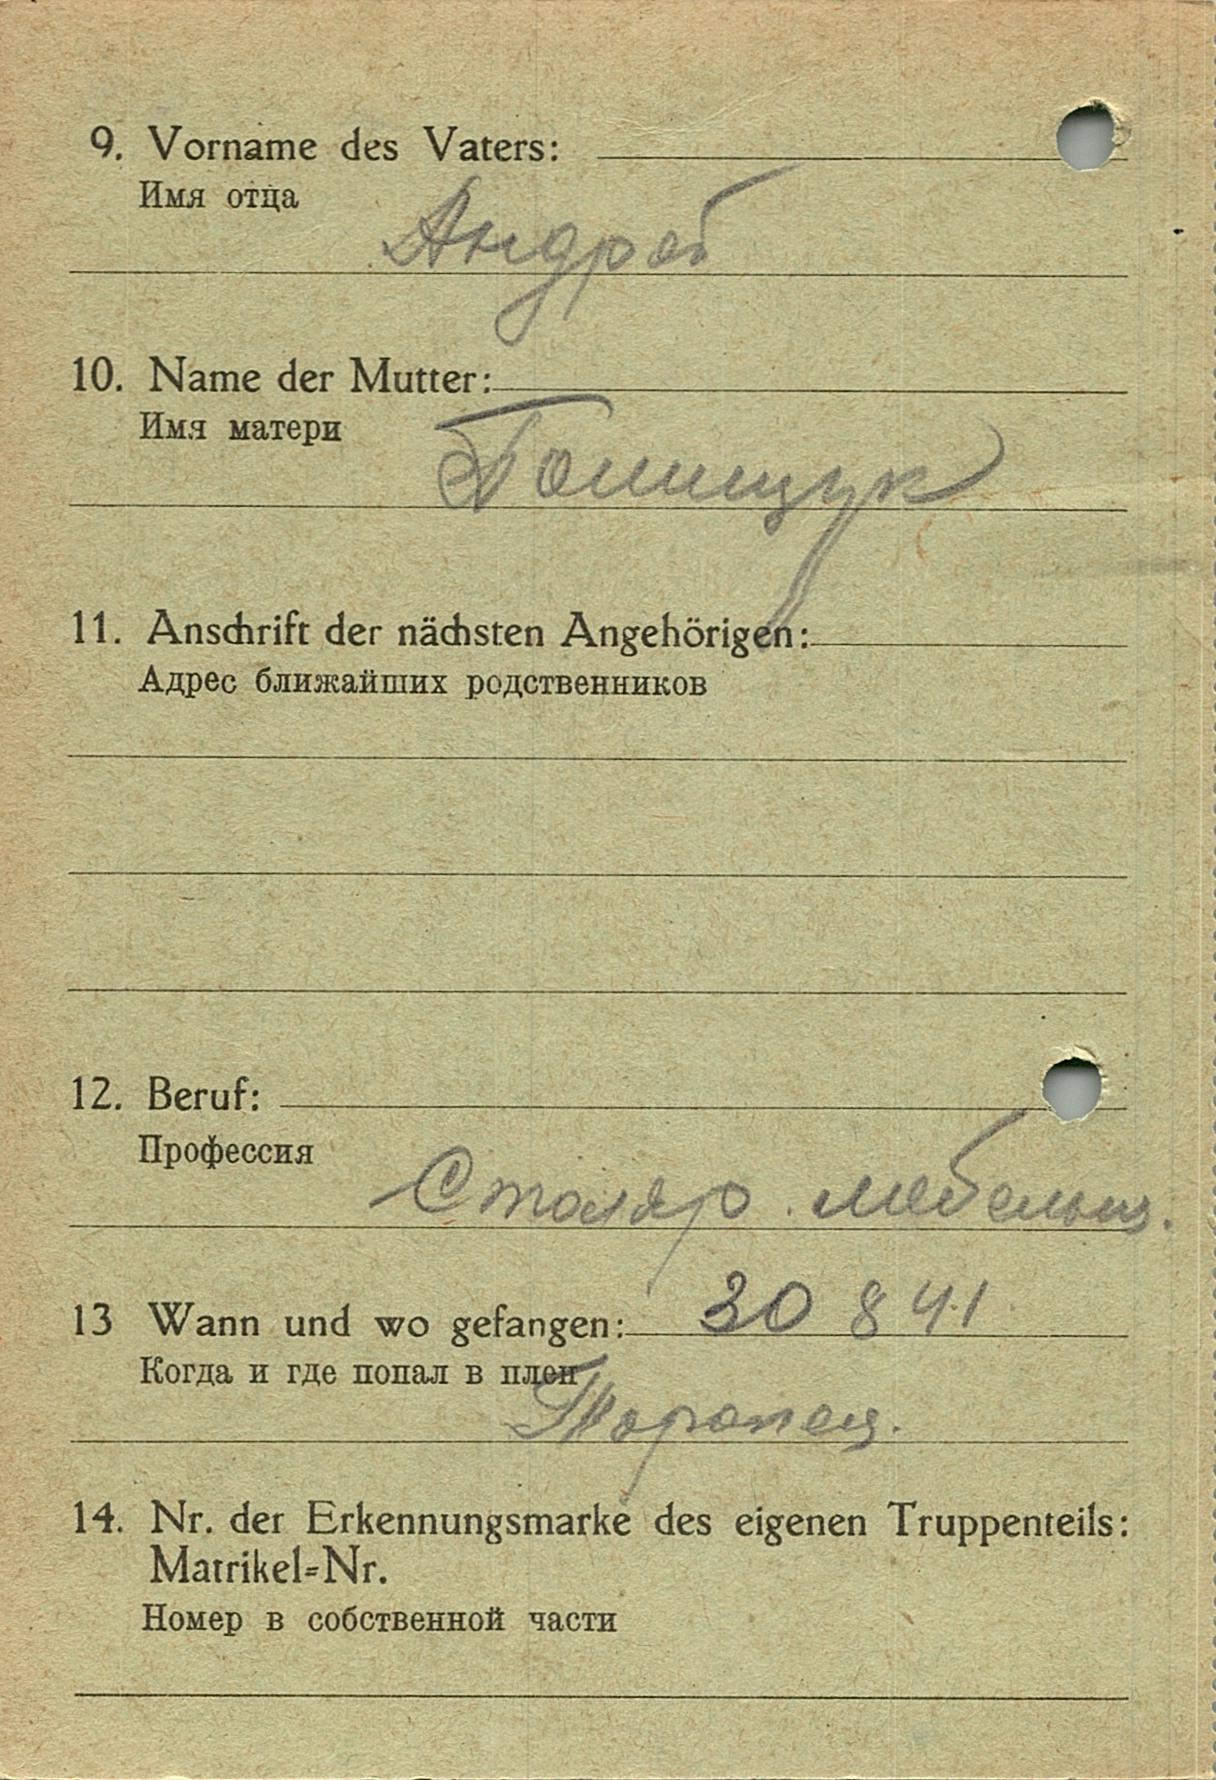 9. Vorname des Vaters:
Имя отца
Андрей
10. Name der Mutter:
Имя матери
Полищук
11. Anschrift der nächsten Angehörigen:
Адрес ближайших родственников
12. Beruf:
Профессия
Столяр. мебельщ.
13 Wann und wo gefangen: 30 8 41
Когда и где попал в плен
Торопец.
14. Nr. der Erkennungsmarke des eigenen Truppenteils:
Matrikel=Nr.
Номер в собственной части